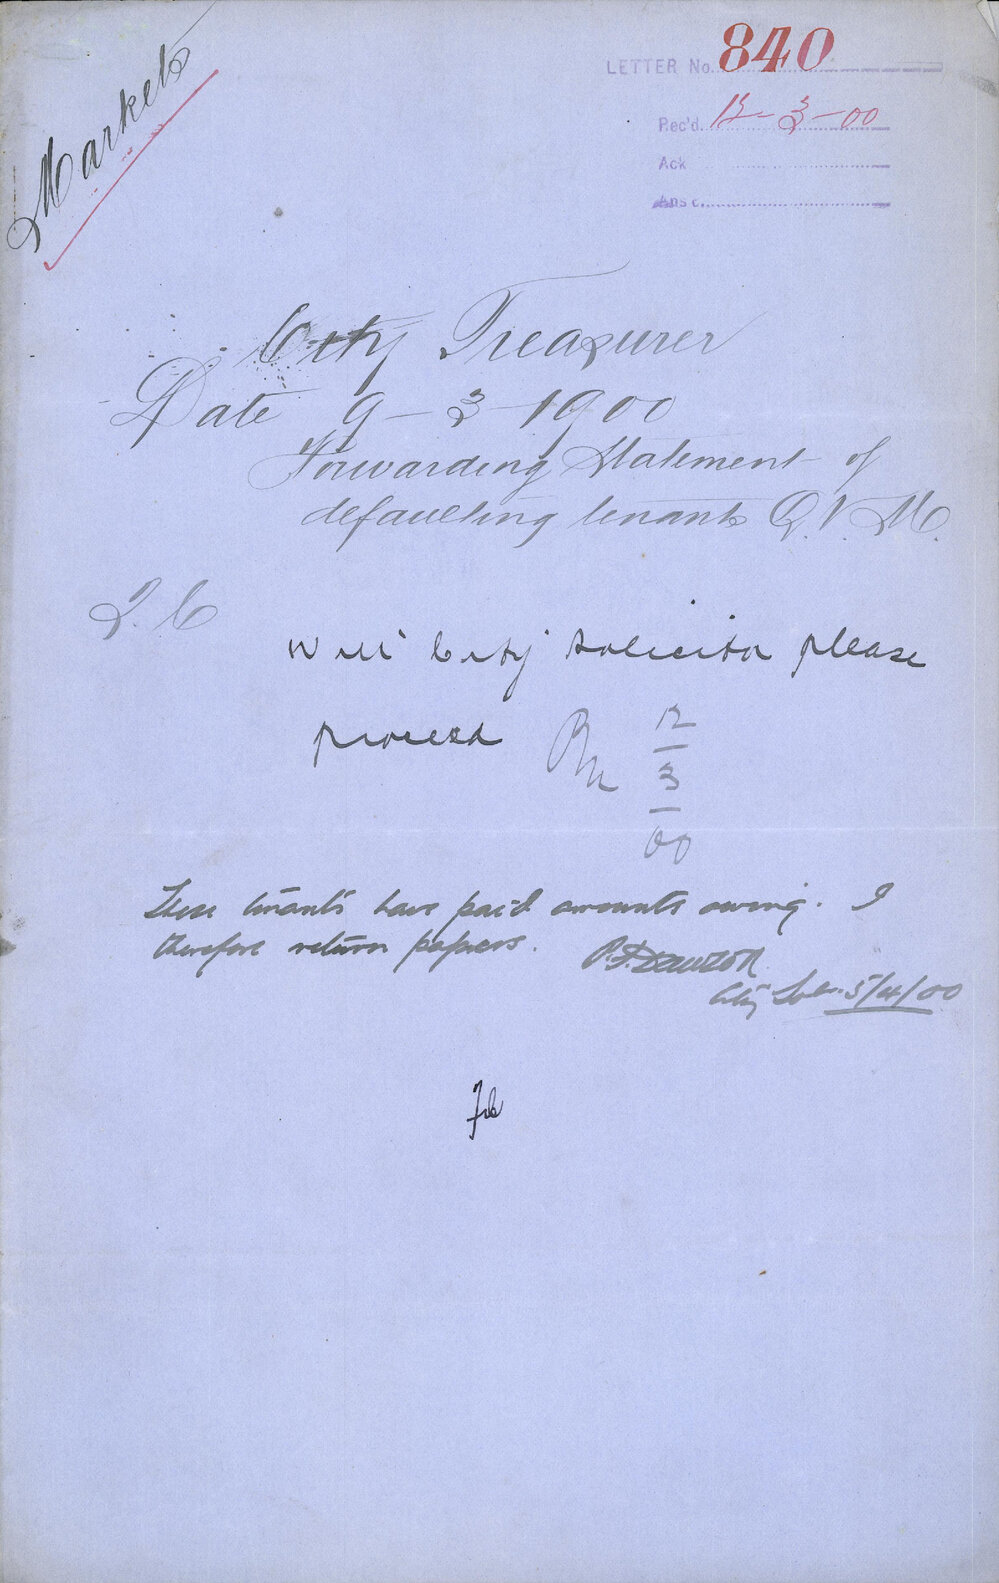 Markets
LETTER No. 840
Rec'd. 12-3-00
Ack
Ans'd.
City Treasurer
Date 9-3-1900
Forwarding Statement of
defaulting tenants Q.V.M.
Will City Solicitor please
proceed
12
3
00
These tenants have paid amounts owing. I
therefore return papers.
City Solr. 5/4/00